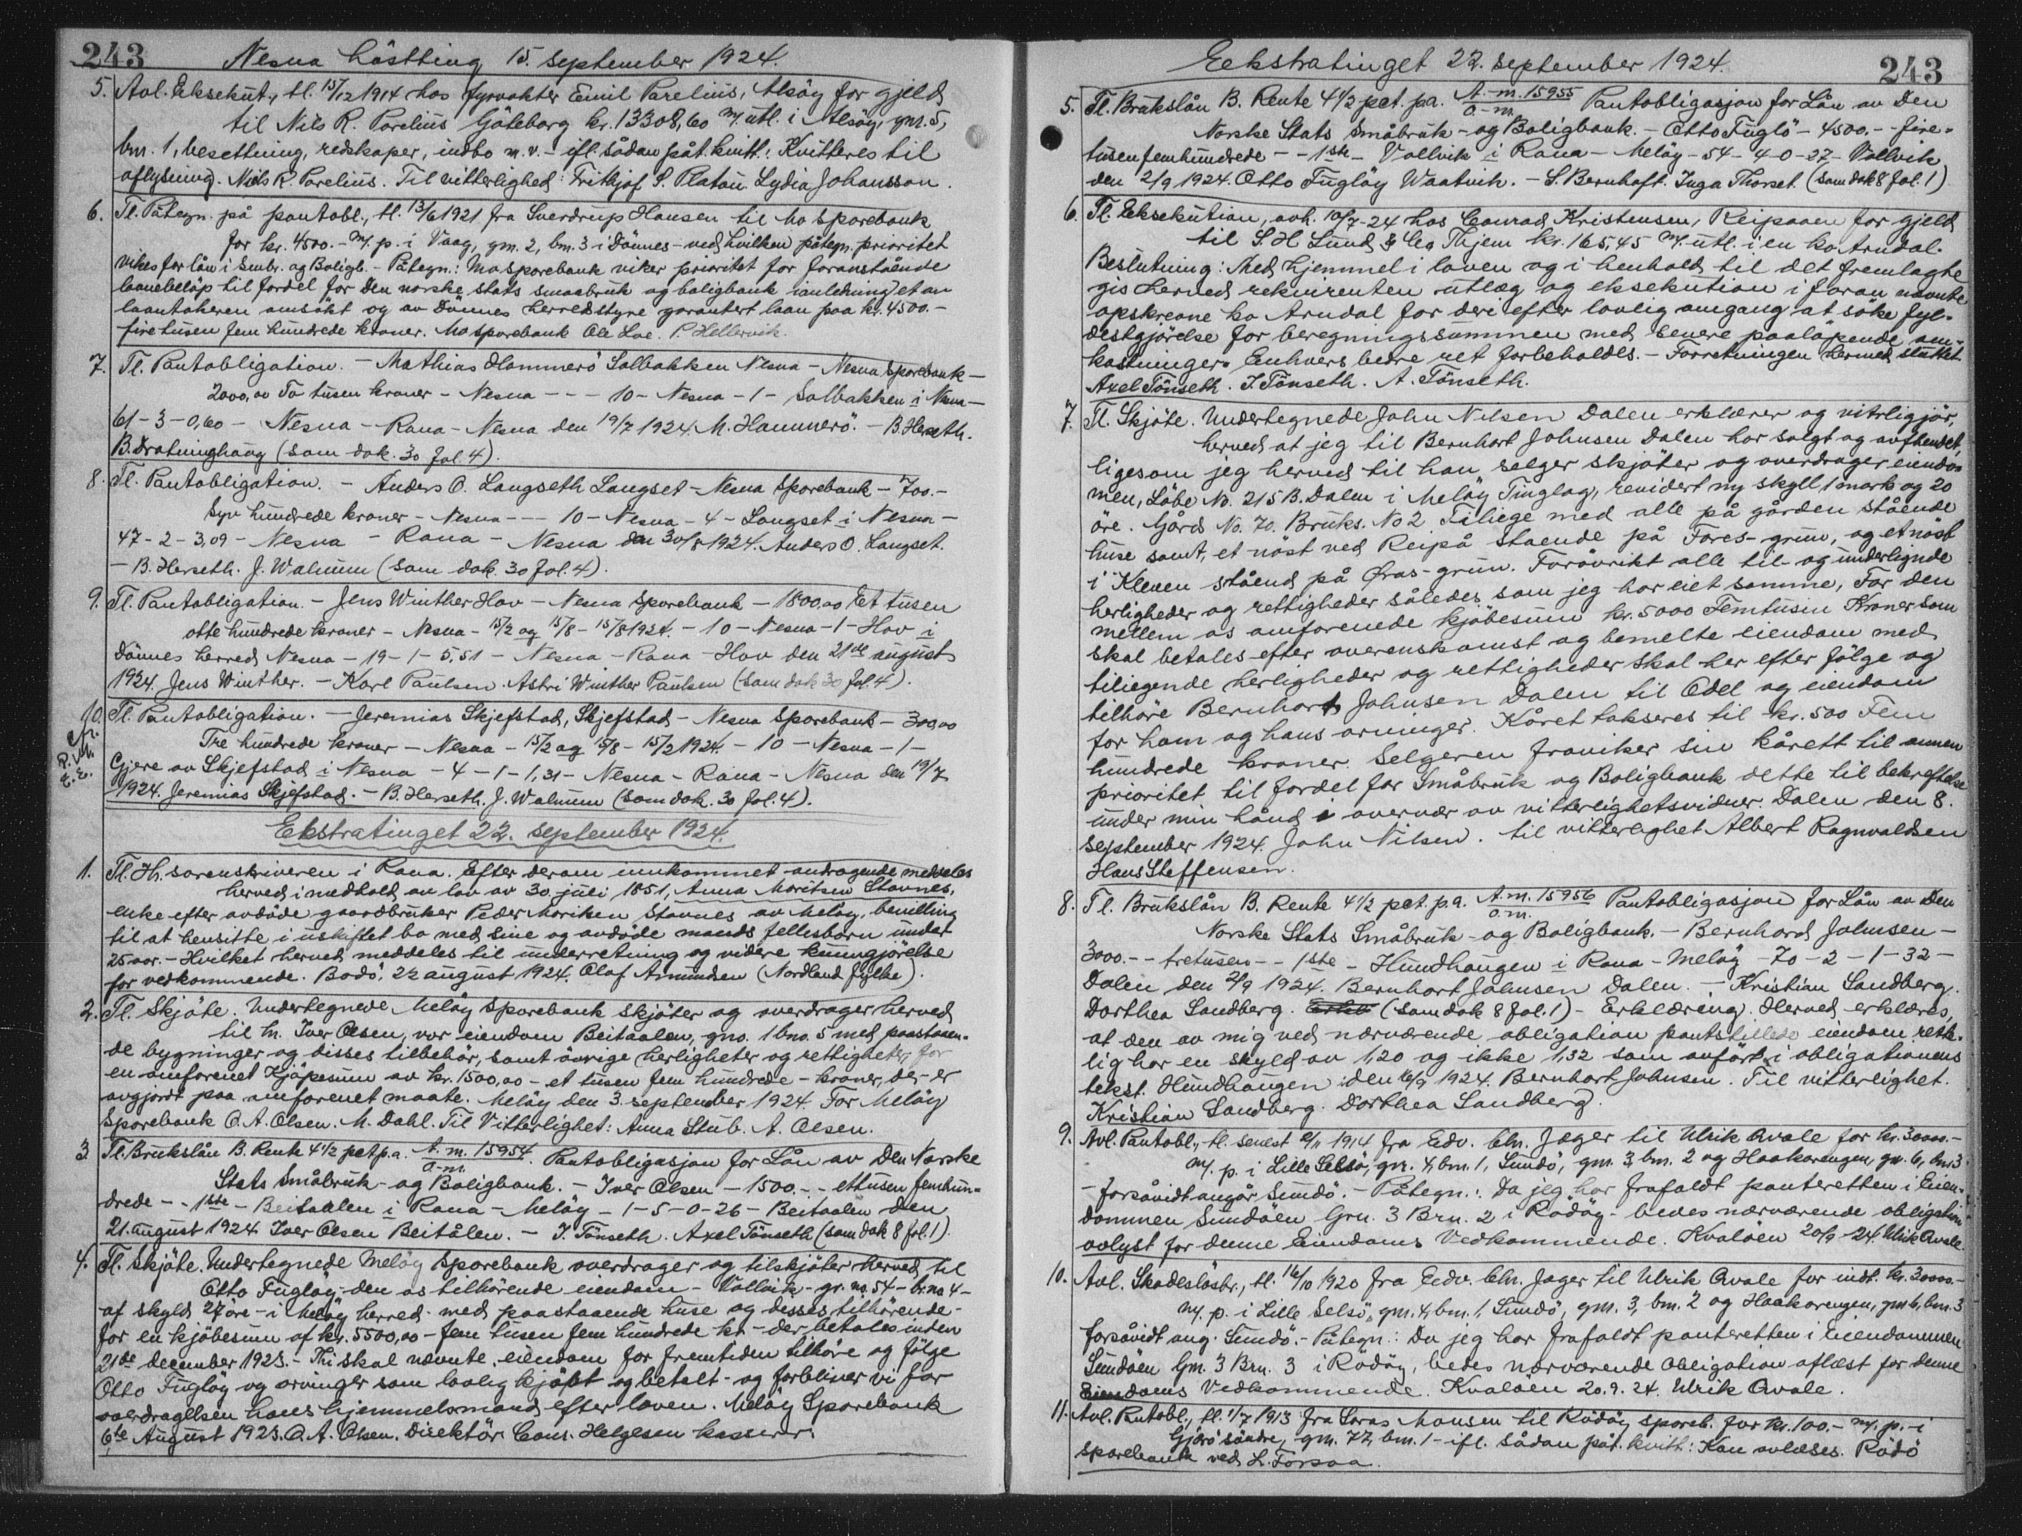 243
Nesna høstting 15. september 1924.
5. Avl. Eksekut., tl. 15/12 1914 hos fyrvokter Emil Parelius, Alsøy for gjeld
til Nils R. Parelius Göteborg kr. 13308,60 m/ utl. i Alsøy, gnr. 5,
bnr. 1, besettning, redskaper, indbo m.v. - ifl. sådan påt. kvitt: Kvitteres til
aflysning. Nils R. Parelius. Til vitterlighed: Frithjof S. Platou Lydia Johansson.
6. Tl. Påtegn. på pantobl., tl. 13/6 1921 fra Sverdrup Hansen til Mo Sparebank
for kr. 4500.- m/ p. i Vaag, gnr. 2, bnr. 3 i Dönnes - ved hvilken påtegn. prioritet
vikes for lån i Smbr. og Boligb. - Påtegn.: Mo Sparebank viker prioritet for foranstående
laanebeløp til fordel for den norske stats smaabruk og boligbank i anledning et av
laantakeren ansökt og av Dönnes Herredsstyre garantert laan paa kr. 4500.-
fire tusen fem hundrede kroner. Mo Sparebank Ole Loe. P. Hellervik.
7. Tl. Pantobligation. - Mathias Hammerö Solbakken Nesna - Nesna Sparebank -
2000,00 To tusen kroner - Nesna - - - 10 - Nesna - 1 - Solbakken i Nesna -
61 - 3 - 0,60 - Nesna - Rana - Nesna den 19/7 1924. M. Hammerö. - B. Herseth.
B. Dratninghaug (som dok. 30 fol. 4).
8. Tl. Pantobligation. - Anders O. Langseth Langset - Nesna Sparebank - 700.-
Syv hundrede kroner - Nesna - - - 10 - Nesna - 4 - Langset i Nesna -
47 - 2 - 3,09 - Nesna - Rana - Nesna den 30/8 1924. Anders O. Langset.
- B. Herseth. J. Walnum (som dok. 30 fol. 4).
9. Tl. Pantobligation. - Jens Winther Hov - Nesna Sparebank - 1800,00 Et tusen
otte hundrede kroner - Nesna - 15/2 og 15/8 - 15/8 1924. - 10 - Nesna - 1 - Hov i
Dönnes herred Nesna - 19 - 1 - 5,51 - Nesna - Rana - Hov den 21de august
1924. Jens Winther. - Karl Paulsen. Astri Winther Paulsen (som dok 30 fol. 4).
10. Tl. Pantobligation. - Jeremias Skjefstad, Skjefstad - Nesna Sparebank - 300,00
Tre hundrede kroner - Nesna - 15/2 og 15/8 - 15/2 1924. - 10 - Nesna - 1 -
Gjere av Skjefstad i Nesna - 4 - 1 - 1,31 - Nesna - Rana - Nesna den 19/7
1924. Jeremias Skjefstad. - B. Herseth. J. Walnum (som dok. 30 fol. 4).
Ekstratinget 22. september 1924.
1. Tl. Hr. sorenskriveren i Rana. Efter derom innkommet andragende meddeles
herved i medhold av lov av 30 juli 1851, Anna Moritsen Stavnes,
enke efter avdöde gaardbruker Peder Moritsen Stavnes av Meløy, bevilling
til at hensitte i uskiftet bo med sine og avdöde mands fellesbarn under
25 aar. - Hvilket herved meddeles til underretning og videre kunngjörelse
for vedkommende. Bodö, 22 august 1924. Olaf Asmundsen (Nordland fylke).
2. Tl. Skjöte. Undertegnede Meløy Sparebank skjöter og overdrager herved
til hr. Iver Olsen, vor eiendom Beitaalen, gno. 1 bno. 5 med paastaaen-
de bygninger og disses tilbehör, samt övrige herligheter og rettigheter for
en omforenet kjöpesum av kr. 1500,00 - et tusen fem hundrede - kroner, der er
avgjort paa omforenet maate. Meløy den 3. september 1924. For Meløy
Sparebank O. A. Olsen. M. Dahl. Til Vitterlighet: Anna Stub. A. Olsen.
3 Tl. Brukslån B. Rente 4 1/2 pct p.a. A.m. 15954 / O-m. Pantobligasjon for Lån av Den Norske
Stats Småbruk- og Boligbank. - Iver Olsen - 1500. - - ettusen femhun-
drede - - 1ste - Beitaalen i Rana - Meløy - 1 - 5 - 0 - 26 - Beitaalen den
21. august 1924 Iver Olsen Beitålen. - I. Tönseth. Axel Tönseth (som dok 8 fol. 1).
4. Tl. Skjöte. Undertegnede Meløy Sparebank overdrager og tilskjöter herved til
Otto Fugløy - den os tilhörende eiendom - Vallvik - gr. no. 54 - br. no 4 -
af skyld 27 øre - i Meløy herred - med paastaaende huse og desses tilhörende -
for en kjöbesum af kr. 5500,00 - fem tusen fem hundrede kr - der betales inden
21de december 1923. - Thi skal nævnte eiendom for fremtiden tilhøre og fölge
Otto Fugløy og arvinger som lovlig kjöbt og betalt - og forbliver vi for
overdragelsen hans hjemmelsmand efter loven. Meløy Sparebank
6te August 1923. O. A. Olsen. Direktör Cons. Helgesen kasserer.
Eekstratinget 22. september 1924.
243
5. Tl. Brukslån B. Rente 4 1/2 pct. pa. A-m. 15955 / O-m. Pantobligasjon for Lån av Den
Norske Stats Småbruk- og Boligbank. - Otto Fuglö - 4500. - - fire-
tusenfemhundrede - - 1ste - Vallvik i Rana - Meløy - 54 - 4 - 0 - 27 - Vallvik
den 2/9 1924. Otto Fugløy Waatvik. - S. Bernhoft. Inga Thorset. (Som dok 8 fol. 1)
6. Tl. Eksekution, avh. 10/7-24 hos Conrad Kristensen, Reipaaen for gjeld
til S. H. Lund & Co Thjem kr. 165,45 m/ utl. i en ko Arndal.
Beslutning: Med hjemmel i loven og i henhold til det fremlagte
gis herved rekvirenten utlæg og eksekution i foran nævnte
opskrevne ko Arndal for dere efter lovlig omgang at søke fyl-
destgjörelse for beregningssummen med senere paalöpende om-
kostninger. Enhvers bedre ret forbeholdes. - Forretningen hermed sluttet.
Axel Tönseth. I. Tönseth. A. Tönseth.
7. Tl. Skjöte. Undertegnede John Nilsen Dalen erklærer og vitrligjör,
herved at jeg til Bernhart Johnsen Dalen har solgt og avhendet,
ligesom jeg herved til han selger skjöter og overdrager eiendo-
men, Löbe No. 215 B. Dalen i Meløy Tinglag, revidert ny skyll 1 mark og 20
öre. Gård No. 70. Bruks. No 2 Tiliege med alle på gården stående
huse samt, et nöst ved Reipå staende på Fores-grun, og et nöst
i Kleven stående på Øras-grun. Foröwrikt alle til- og underlignde
herligheder og rettigheder således som jeg har eiet samme, For den
mellem os omforenede kjöbesum kr. 5000 Femtusen Kroner som
skal betales efter overenskomst og bemelte eiendom med
tiliegende herligheder og rettligheder skal her efter fölge og
tilhöre Bernhart Johnsen Dalen til Odel og eiendom
for ham og hans arvinger. Kåret takseres til kr. 500 Fem
hundrede kroner. Selgeren fraviker sin kårett til annen
prioritet til fordel for Småbruk og Boligbank dette til bekreftelse
under min hånd i overvær av vitterlighetsvidner. Dalen den 8.
September 1924. John Nilsen. til vitterlighet Albert Ragnvaldsen
Hans Steffensen.
8. Tl. Brukslån B. Rente 4 1/2 pct. p.a. A.m. 15956 / O.m. Pantobligasjon for Lån av Den
Norske Stats Småbruk- og Boligbank. - Bernhard Johnsen -
3000. - - tretusen - - 1ste - Hundhaugen i Rana - Meløy - 70 - 2 - 1 - 32 -
Dalen den 2/9 1924. Bernhart Johnsen Dalen. - Kristian Sandberg.
Dorthea Sandberg. (Som dok 8 fol. 1) - Erklæring. Herved erklæres,
at den av mig ved nærværende obligation pantstillede eiendom rett-
lig har en skyld av 1,20 og ikke 1,32 som anfört i obligationens
tekst. Hundhaugen iden 16/9 1924. Bernhart Johnsen. Til vitterlighet.
Kristian Sandberg. Dorthea Sandberg.
9. Avl. Pantobl., tl. senest 9/11 1914 fra Edv. Chr. Jæger til Ulrik Qvale for kr. 30000.-
m/. p. i Lille Selsö, gnr. 4, bnr. 1, Sundö, gnr. 3, bnr. 2 og Haakorengen, gnr 6, bnr 3
- forsåvidt angår Sundö. - Påtegn.: Da jeg har frafaldt panteretten i Eien-
dommen Sundöen Grn. 3 Brn. 2 i Rödöy - bedes nærværende obligation
avlyst for denne Eiendoms Vedkommende. Kvalöen 20/9-24 Ulrik Qvale.
10. Avl. Skadeslösbr., tl. 16/10 1920 fra Edv. Chr. Jæger til Ulrik Qvale for indt. kr. 30000.-
m/. p. i Lille Selsö, gnr. 4, bnr. 1, Sundö, gnr. 3, bnr. 2 og Haakorengen, gnr 6, bnr. 3
forsåvidt ang. Sundö. - Påtegn.: Da jeg har frafaldt panteretten i Eiendommen
Sundöen Grn. 3 Brn. 3 i Rödöy, bedes nærværende Obligation aflæst for denne
Eiendoms Vedkommende. Kvalöen 20.9.24. Ulrik Qvale.
11. Avl. Pantobl., tl. 1/7 1913 fra Loras Monsen til Rödöy spareb. for kr. 100.- m/. p. i
Gjörö söndre, gnr. 77, bnr. 1 - ifl. sådan påt. kvitt: Kan avlæses. Rödö
sparebank ved L. Forsaa.